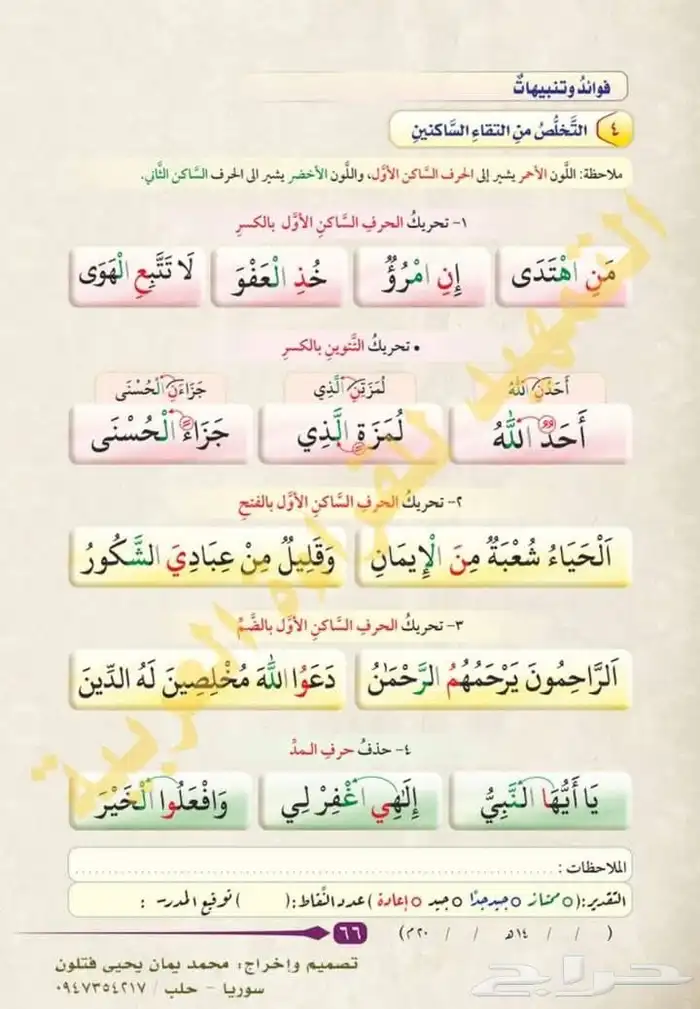 فوائدُ وتنبيهاتٌ
٤ التَّخلُّصُ منِ التقاءِ السَّاكنينِ
ملاحظة: اللَّون الأحمر يشير إلى الحرف السَّاكن الأوَّل، واللَّون الأخضر يشير الى الحرف السَّاكن الثَّاني.
١- تحريكُ الحرفِ السَّاكنِ الأوَّل بالكسرِ
مَنِ اهْتَدَى إِنِ امْرُؤٌ خُذِ الْعَفْوَ لَا تَتَّبِعِ الْهَوَى
• تحريكُ التَّنوينِ بالكسرِ
أَحَدُنِ اللّٰهُ لُمَزَتِنِ الَّذِي جَزَاءَنِ الْحُسْنَى
أَحَدٌ اللّٰهُ لُمَزَةٍ الَّذِي جَزَاءً الْحُسْنَى
٢- تحريكُ الحرفِ السَّاكنِ الأوَّل بالفتحِ
اَلْحَيَاءُ شُعْبَةٌ مِنَ الْإِيمَانِ وَقَلِيلٌ مِنْ عِبَادِيَ الشَّكُورُ
٣- تحريكُ الحرفِ السَّاكنِ الأوَّل بالضَّمِّ
اَلرَّاحِمُونَ يَرْحَمُهُمُ الرَّحْمٰنُ دَعَوُا اللّٰهَ مُخْلِصِينَ لَهُ الدِّينَ
٤- حذفُ حرفِ المدِّ
يَا أَيُّهَا النَّبِيُّ إِلَهِي اغْفِرْ لِي وَافْعَلُوا الْخَيْرَ
الملاحظات :
التقدير:( ممتاز جيد جدًا جيد إعادة ) عدد النِّقاط:( ) توقيع المدرس :
( / / ١٤هـ / / ٢٠م )
٦٦
تصميم وإخراج: محمد يمان يحيى فتلون
سوريا - حلب / ٠٩٤٧٣٥٤٢١٧
حراج
التمهيد للقراءة العربية